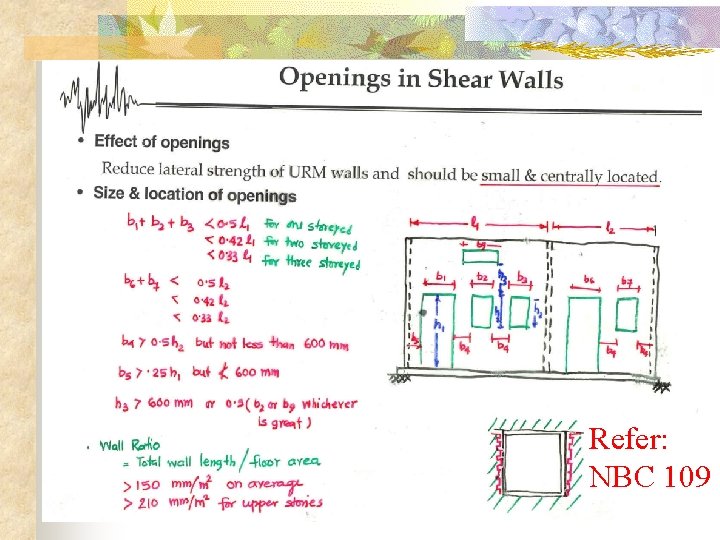 Openings in Shear Walls
• Effect of openings
Reduce lateral strength of URM walls and should be small & centrally located.
• Size & location of openings
b1 + b2 + b3 < 0.5 l1 for one storeyed
< 0.42 l1 for two storeyed
< 0.33 l1 for three storeyed
b6 + b7 < 0.5 l2
< 0.42 l2
< 0.33 l2
b4 > 0.5 h2 but not less than 600 mm
b5 > .25 h1 but ≮ 600 mm
h3 > 600 mm or 0.5 (b2 or b9 whichever
is great)
. Wall Ratio
= Total wall length / floor area
> 150 mm/m² on average
> 210 mm/m² for upper stories
l1 l2
b9
b1 b2 h3 b3 b6 b7
h1 h2
b5 b4 b4 b4 b5
Refer:
NBC 109